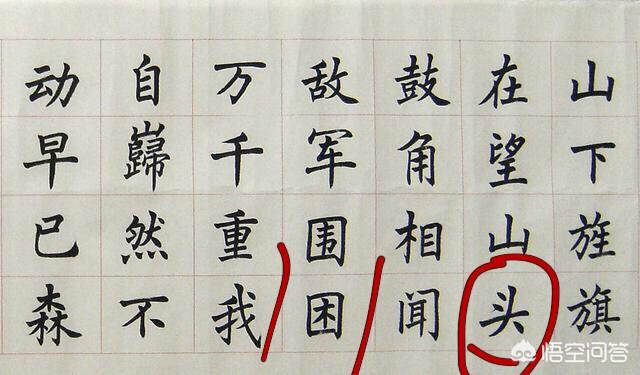 山下旌旗
在望山头
鼓角相闻
敌军围困
万千重我
自巋然不
动早已森
悟空问答